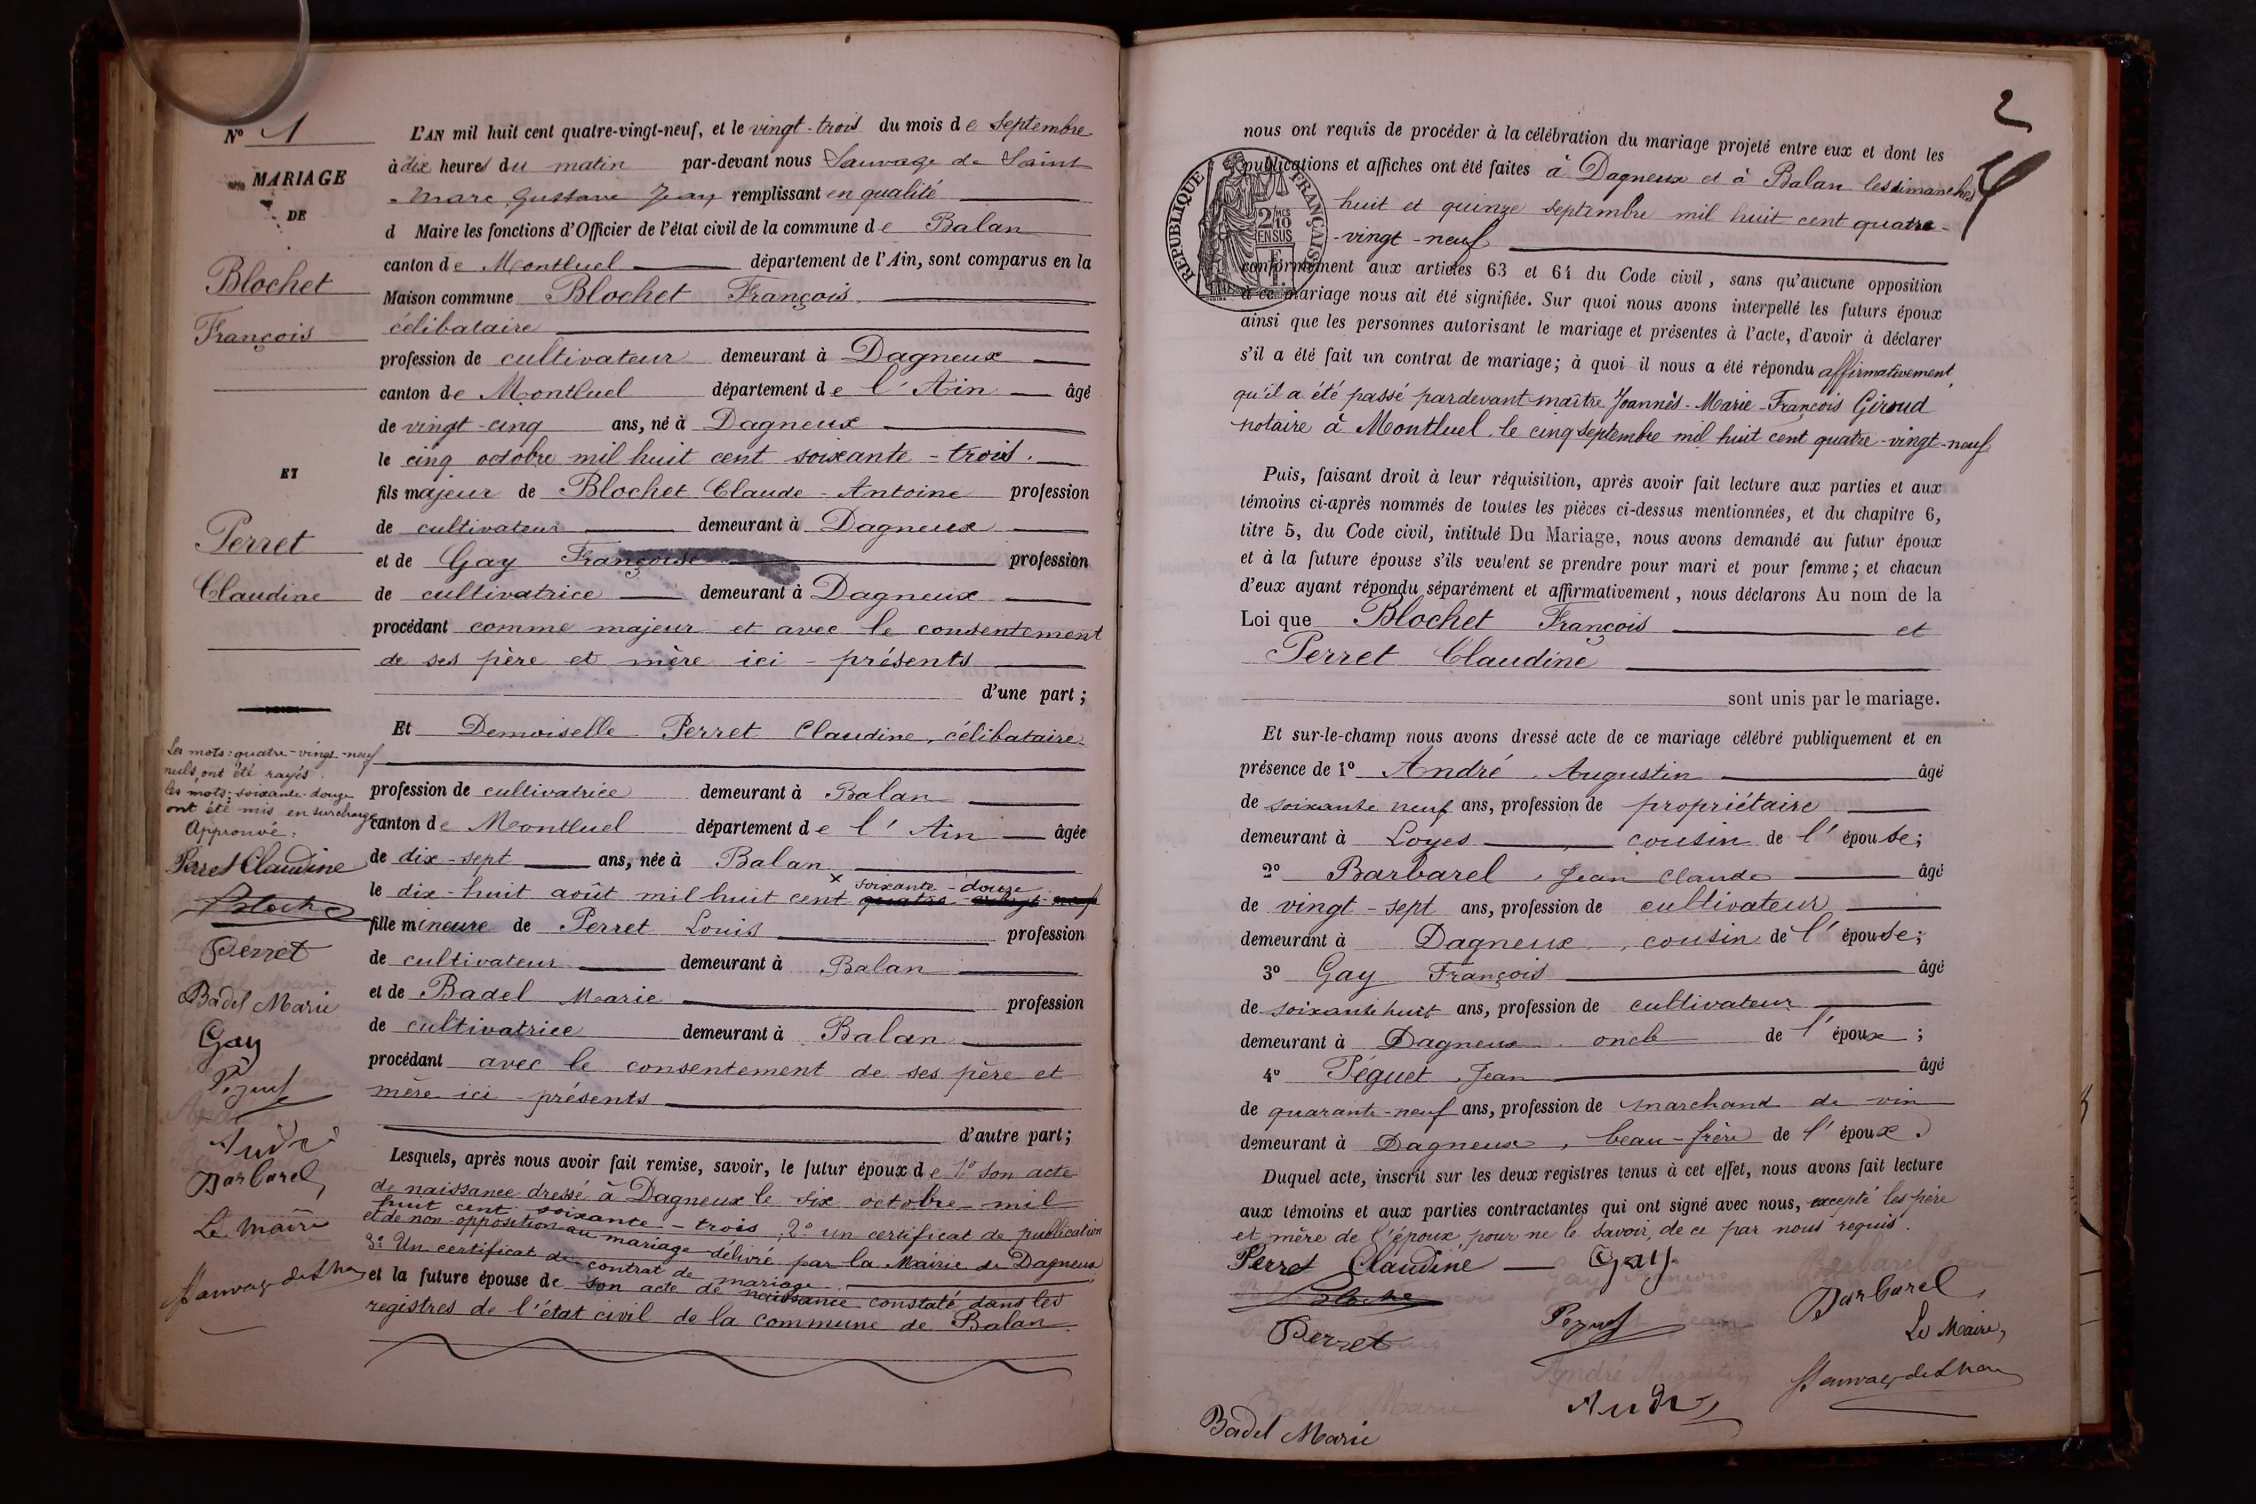 N° 1
MARIAGE
DE
Blochet
François
ET
Perret
Claudine
Les mots : quatre-vingt-neuf
nuls, ont été rayés.
les mots : soixante-douze
ont été mis en surcharge
Approuvé :
Perret Claudine
Blochet
Perret
Badel Marie
Gay
Péguet
André
Barbarel
Le Maire
L'AN mil huit cent quatre-vingt-neuf, et le vingt-trois du mois de Septembre
à dix heures du matin par-devant nous Sauvage de Saint
Marc Gustave Jean remplissant en qualité
d Maire les fonctions d'Officier de l'état civil de la commune de Balan
canton de Montluel département de l'Ain, sont comparus en la
Maison commune Blochet François
célibataire
profession de cultivateur demeurant à Dagneux
canton de Montluel département de l'Ain âgé
de vingt-cinq ans, né à Dagneux
le cinq octobre mil huit cent soixante-trois.
fils majeur de Blochet Claude-Antoine profession
de cultivateur demeurant à Dagneux
et de Gay Françoise profession
de cultivatrice demeurant à Dagneux
procédant comme majeur et avec le consentement
de ses père et mère ici-présents
d'une part ;
Et Demoiselle Perret Claudine, célibataire
profession de cultivatrice demeurant à Balan
canton de Montluel département de l'Ain âgée
de dix-sept ans, née à Balan
x soixante-douze
le dix-huit août mil huit cent quatre-vingt-neuf
fille mineure de Perret Louis profession
de cultivateur demeurant à Balan
et de Badel Marie profession
de cultivatrice demeurant à Balan
procédant avec le consentement de ses père et
mère ici-présents
d'autre part ;
Lesquels, après nous avoir fait remise, savoir, le futur époux de 1° son acte
de naissance dressé à Dagneux le six octobre mil
huit cent soixante-trois, 2° un certificat de publication
et de non-opposition au mariage délivré par la Mairie de Dagneux
3° Un certificat de contrat de mariage
et la future épouse de son acte de naissance constaté dans les
registres de l'état civil de la commune de Balan
2
RÉPUBLIQUE FRANÇAISE
2/10 EN SUS
nous ont requis de procéder à la célébration du mariage projeté entre eux et dont les
publications et affiches ont été faites à Dagneux et à Balan les dimanches
huit et quinze septembre mil huit cent quatre-
-vingt-neuf
conformément aux articles 63 et 64 du Code civil, sans qu'aucune opposition
à ce mariage nous ait été signifiée. Sur quoi nous avons interpellé les futurs époux
ainsi que les personnes autorisant le mariage et présentes à l'acte, d'avoir à déclarer
s'il a été fait un contrat de mariage; à quoi il nous a été répondu affirmativement,
qu'il a été passé pardevant maître Joannès-Marie-François Giroud
notaire à Montluel, le cinq septembre mil huit cent quatre-vingt-neuf
Puis, faisant droit à leur réquisition, après avoir fait lecture aux parties et aux
témoins ci-après nommés de toutes les pièces ci-dessus mentionnées, et du chapitre 6,
titre 5, du Code civil, intitulé Du Mariage, nous avons demandé au futur époux
et à la future épouse s'ils veulent se prendre pour mari et pour femme; et chacun
d'eux ayant répondu séparément et affirmativement, nous déclarons Au nom de la
Loi que Blochet François et
Perret Claudine
sont unis par le mariage.
Et sur-le-champ nous avons dressé acte de ce mariage célébré publiquement et en
présence de 1° André, Augustin âgé
de soixante neuf ans, profession de propriétaire
demeurant à Loyes, cousin de l'épouse;
2° Barbarel, Jean Claude âgé
de vingt-sept ans, profession de cultivateur
demeurant à Dagneux, cousin de l'épouse;
3° Gay François âgé
de soixante huit ans, profession de cultivateur
demeurant à Dagneux oncle de l'époux ;
4° Péguet, Jean âgé
de quarante-neuf ans, profession de marchand de vin
demeurant à Dagneux, beau-frère de l'époux.
Duquel acte, inscrit sur les deux registres tenus à cet effet, nous avons fait lecture
aux témoins et aux parties contractantes qui ont signé avec nous, excepté les père
et mère de l'époux, pour ne le savoir, de ce par nous requis.
Perret Claudine — Gay
Blochet
Péguet
Barbarel
Perret
Le Maire,
André
Badel Marie